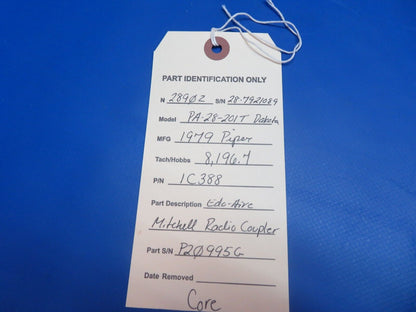 PART IDENTIFICATION ONLY
N 289ØZ S/N 28-7921089
Model PA-28-201T Dakota
MFG 1979 Piper
Tach/Hobbs 8,196.7
P/N 1C388
Part Description Edo-Aire
Mitchell Radio Coupler
Part S/N P2Ø995G
Date Removed
Core